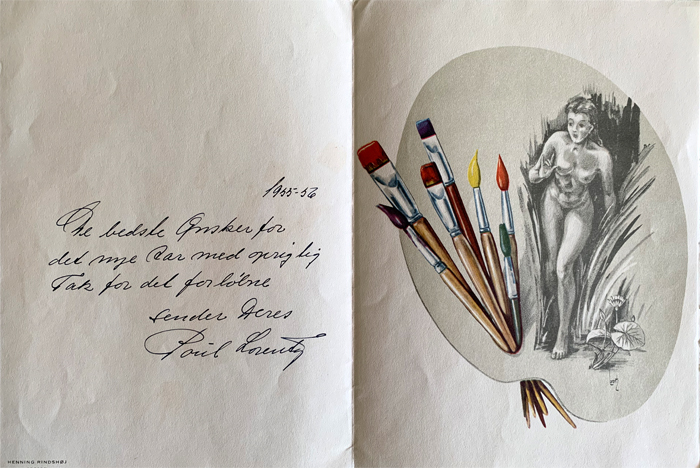 1955-56
De bedste Ønsker for
det nye Aar med oprigtig
Tak for det forløbne
sender Deres
Poul Lorentz
HENNING RINDSHØJ